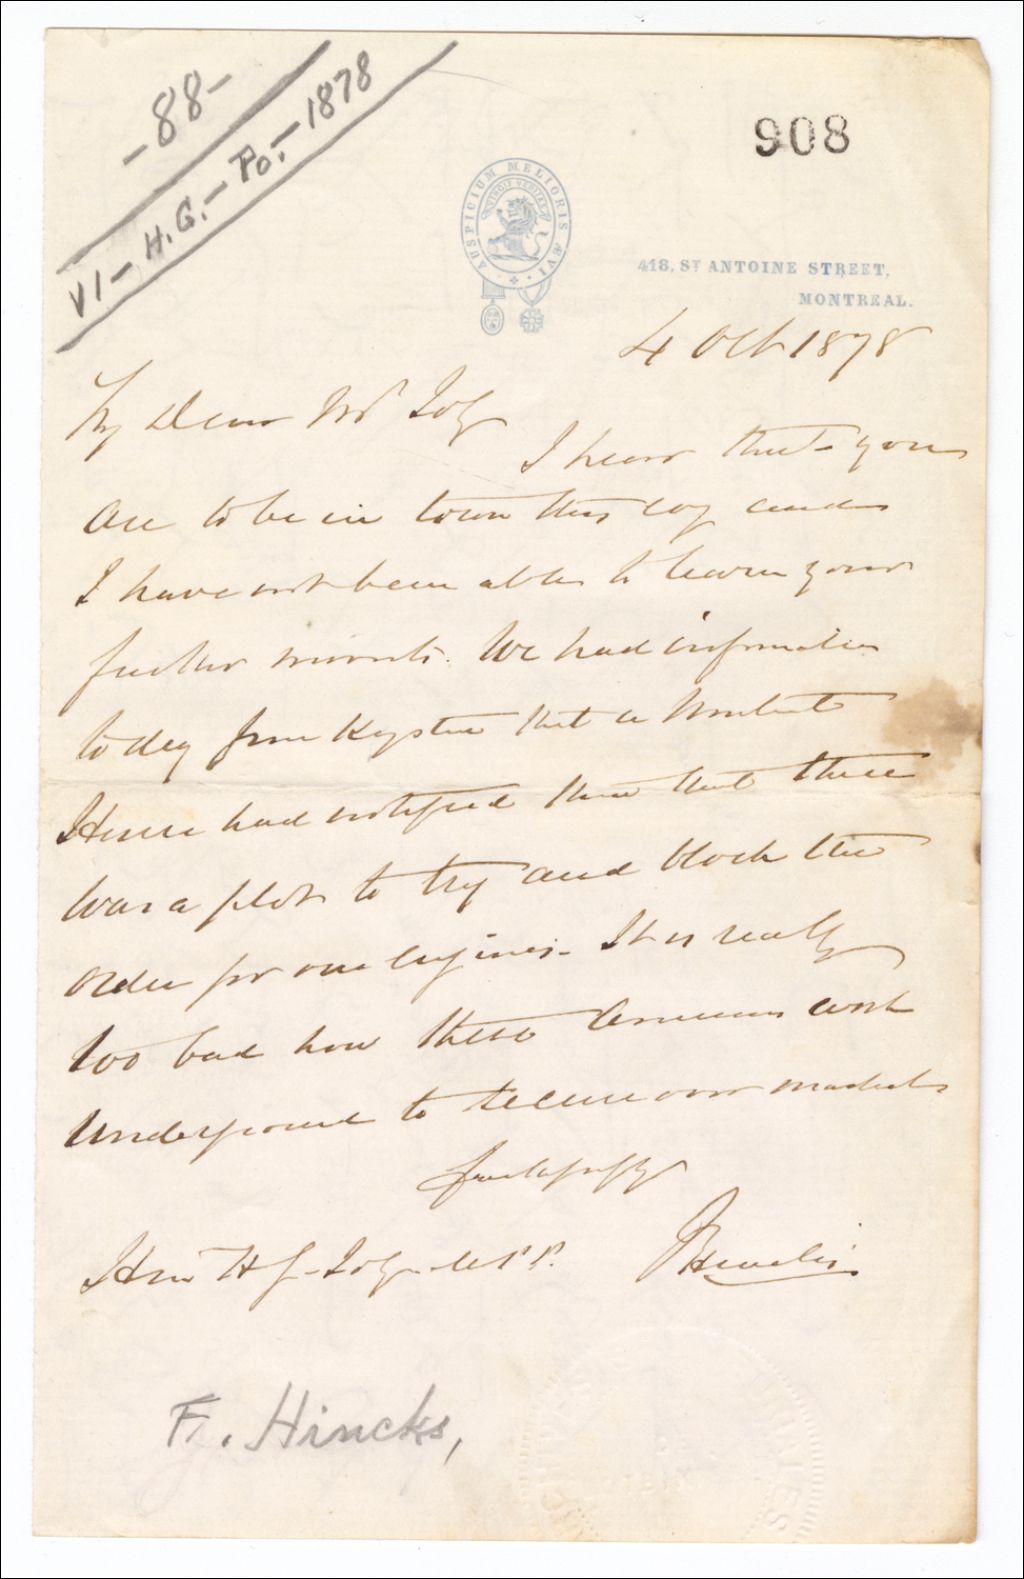 -88-
VI - H.G. - Po. - 1878
908
AUSPICIUM MELIORIS ÆVI
VINCIT VERITAS
418, ST ANTOINE STREET,
MONTREAL.
4 Oct 1878
My Dear Mr Joly
I hear that you
are to be in town this day and
I have not been able to learn your
further movements. We had information
to day from Kingston that a Montreal
House had notified them that there
was a plot to try and block the
order for our Engines. It is really
too bad how these Americans work
underground to secure our markets
F Hincks
Hon H G Joly M.P.P.
F. Hincks,